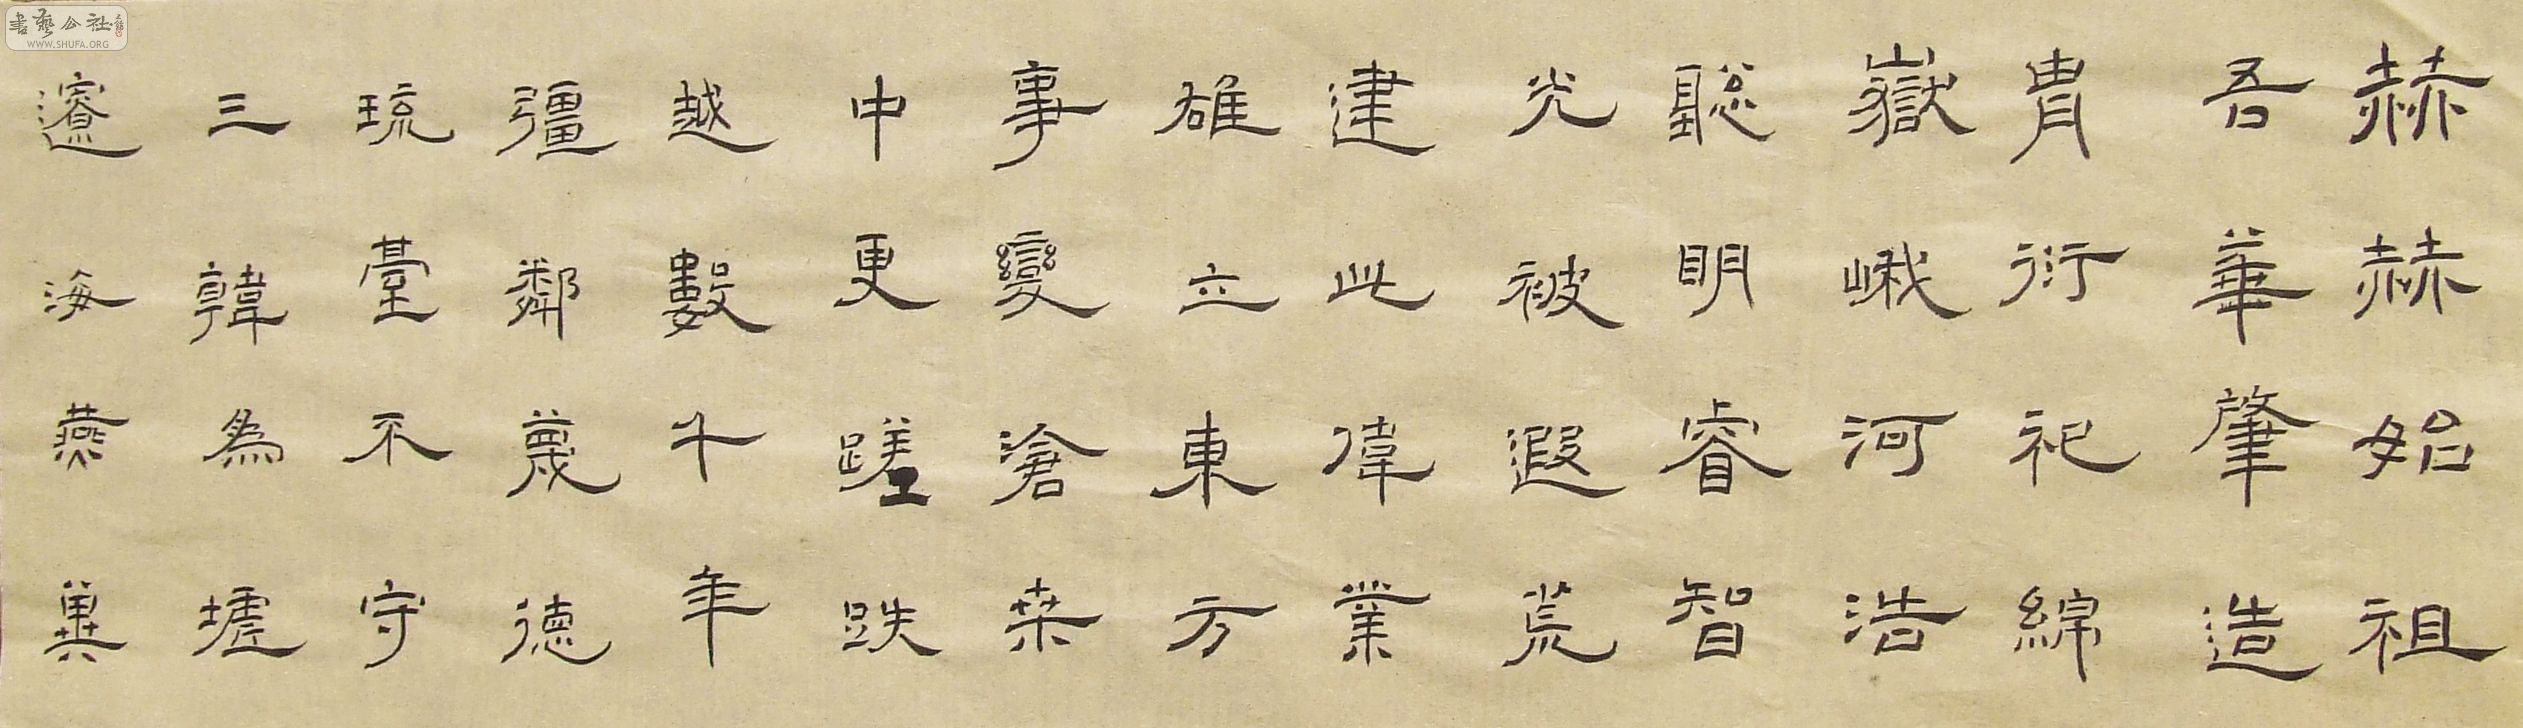 赫赫始祖
吾華肇造
冑衍祀綿
嶽峨河浩
聰明睿智
光被遐荒
建此偉業
雄立東方
事變滄桑
中更蹉跌
越數千年
彊鄰蔑德
琉臺不守
三韓為墟
遼海燕冀
書藝公社
WWW.SHUFA.ORG